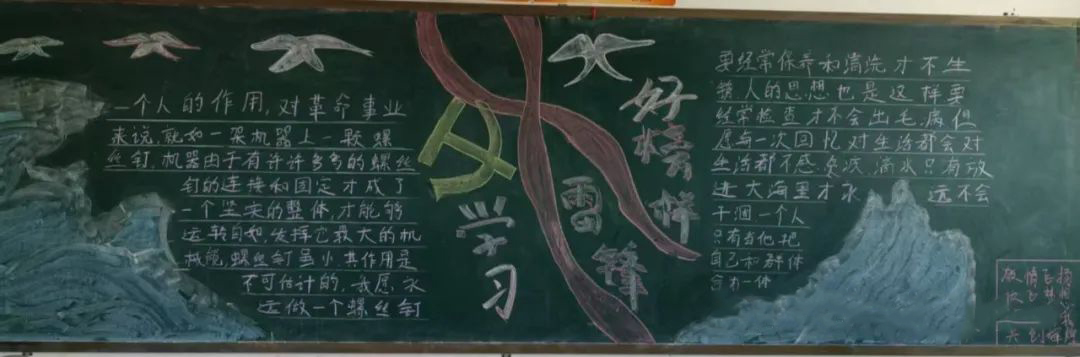 一个人的作用，对革命事业
来说，就如一架机器上一颗螺
丝钉，机器由于有许许多多的螺丝
钉的连接和固定才成了
一个坚实的整体，才能够
运转自如发挥它最大的机
械能，螺丝钉虽小其作用是
不可估计的，我愿，永
远做一个螺丝钉
学习
雷锋
好榜样
要经常保养和清洗才不生
锈人的思想也是这样要
经常检查才不会出毛病但
愿每一次回忆对生活都会对
生活都不感负疚，滴水只有放
进大海里才永 远不会
干涸一个人
只有当他把
自己和群体
合为一体